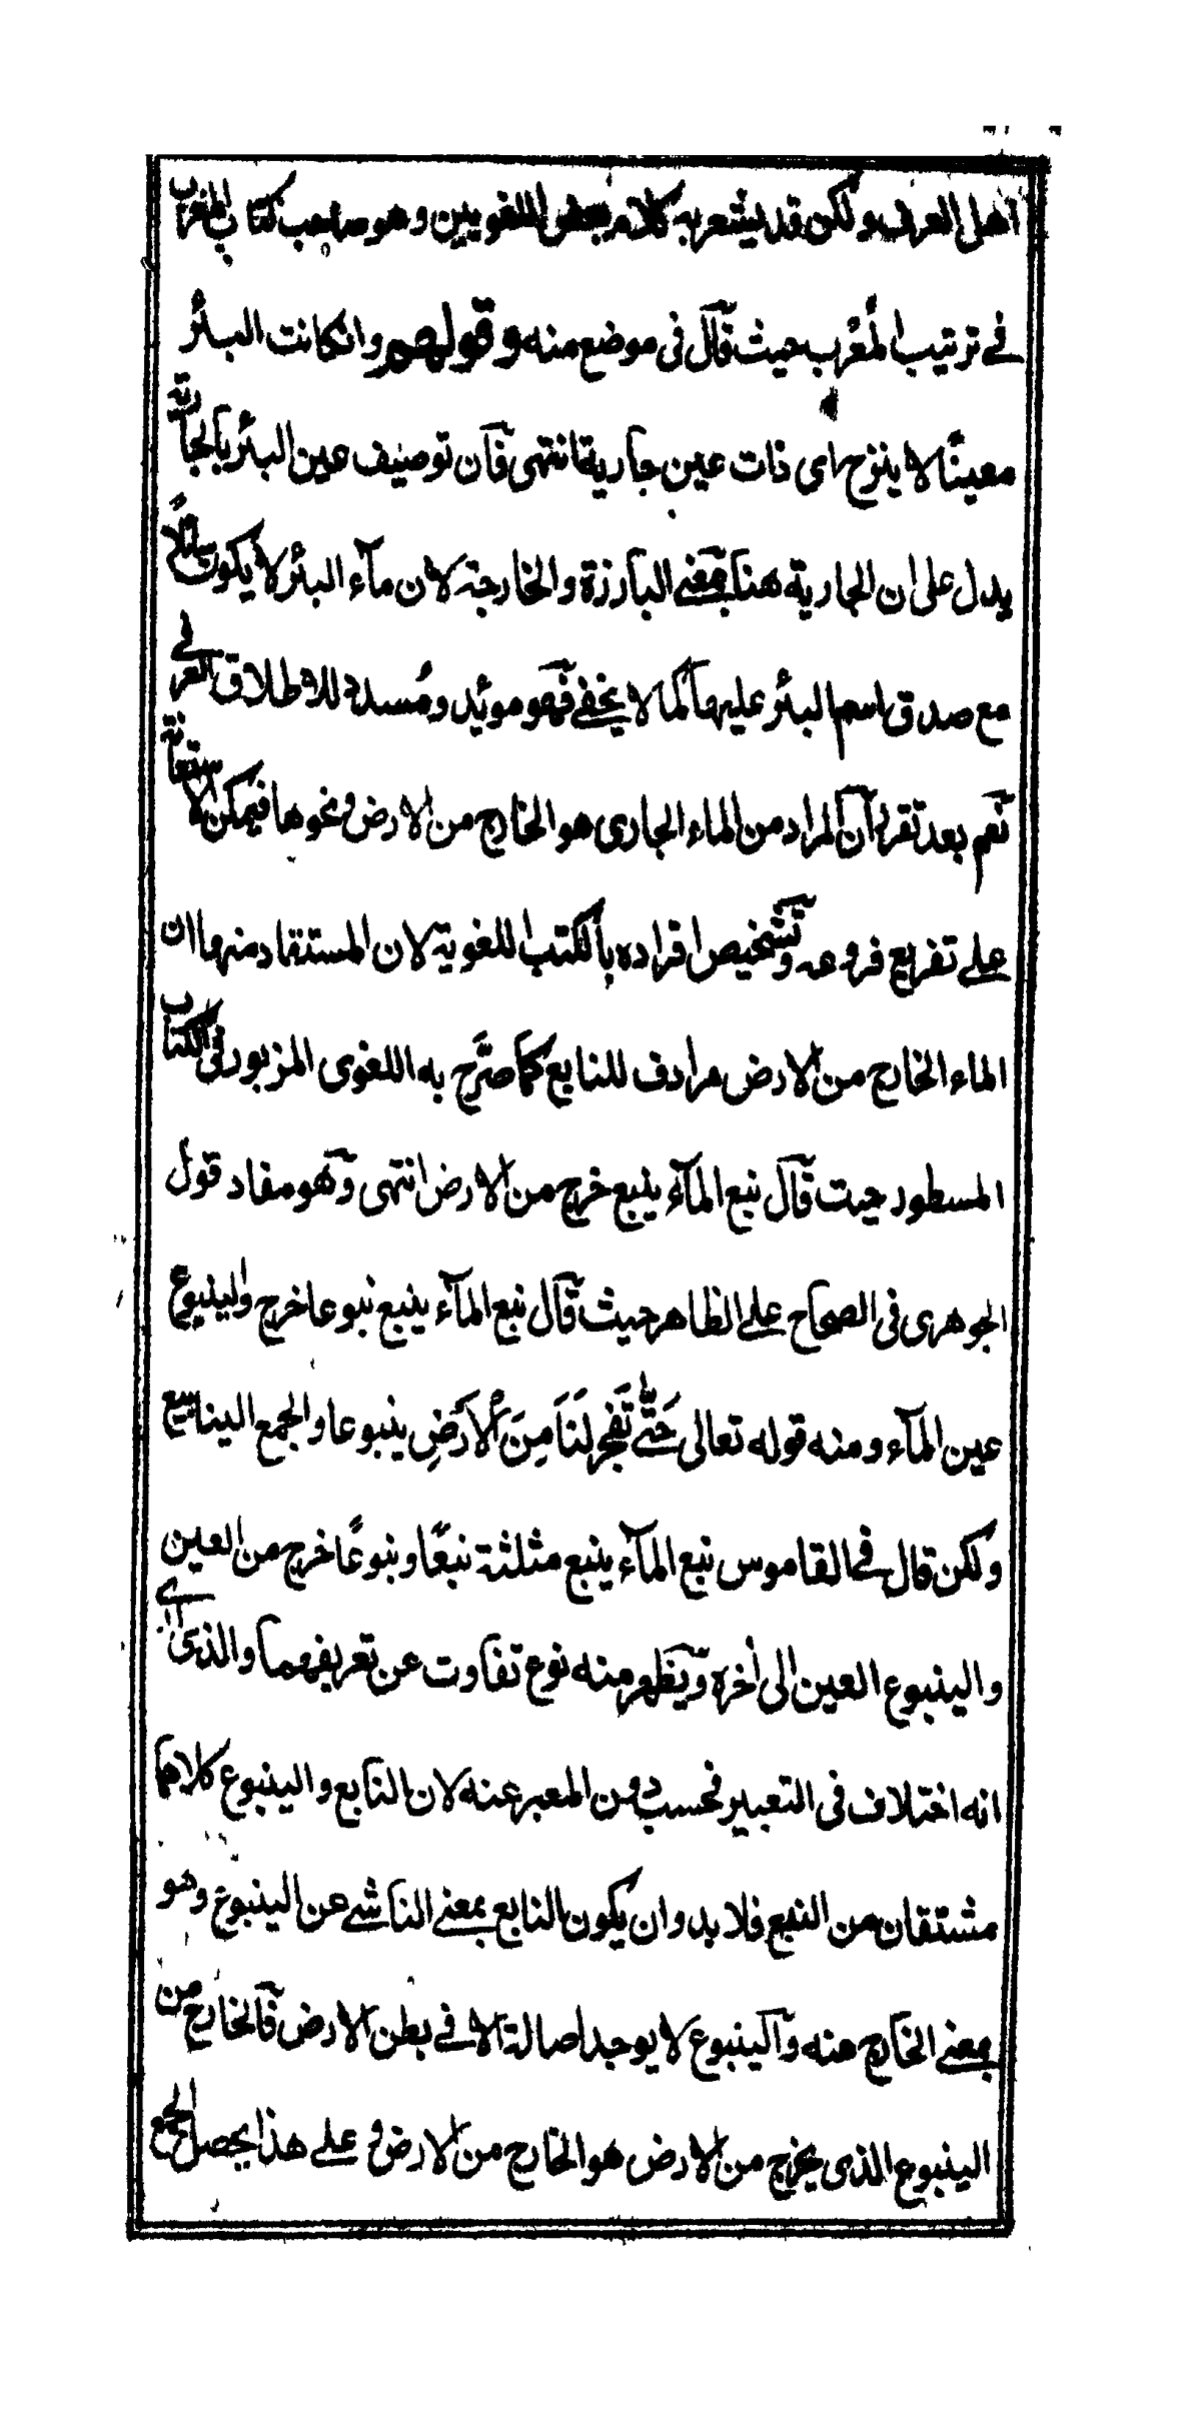 اهل العرف ولكن قد يشعر به كلام بعض اللغويين وهو صاحب كتاب المغرب
في ترتيب المُعْرب حيث قال فى موضع منه وقولهم وانكانت البئر
معينًا لا ينزح اى ذات عين جارية انتهى فان توصيف عين البئر بالجارية
يدل على ان الجارية هنا بمعنے البارزة والخارجة لان مآء البئر لا يكون سائلًا
مع صدق اسم البئر عليها كما لا يخفے فهو موئيد ومُسدد للاطلاق العرفے
نعم بعد تقرر ان المراد من الماء الجارى هو الخارج من الارض ونحوها فيمكن الاستعانة
علے تفريع فروعه وتشخيص افراده بالكتب اللغوية لان المستفاد منها ان
الماء الخارج من الارض مرادف للنابع كما صرَّح به اللغوى المزبور فى الكتاب
المسطور حيث قال نبع المآء ينبع خرج من الارض انتهى وهو مفاد قول
الجوهرى فى الصحاح علے الظاهر حيث قال نبع المآء ينبع نبوعا خرج والينبوع
عين المآء ومنه قوله تعالى حَتّٰى تَفْجرلَنَا مِنَ الْاَرْضِ ينبوعا والجمع الينابيع
ولكن قال في القاموس نبع المآء ينبع مثلثة نبعًا ونبوعًا خرج من العين
والينبوع العين الى اٰخره ويظهر منه نوع تفاوت عن تعريفهما والذى ارى
انه اختلاف فى التعبير فحسب دون المعبر عنه لان النابع والينبوع كلاهما
مشتقان من النبع فلا بد وان يكون النابع بمعنے الناشے عن الينبوع وهو
بمعنے الخارج منه والينبوع لا يوجد اصالة الا في بطن الارض فالخارج من
الينبوع الذى يخرج من الارض هو الخارج من الارض وعلے هذا يحصل الجمع